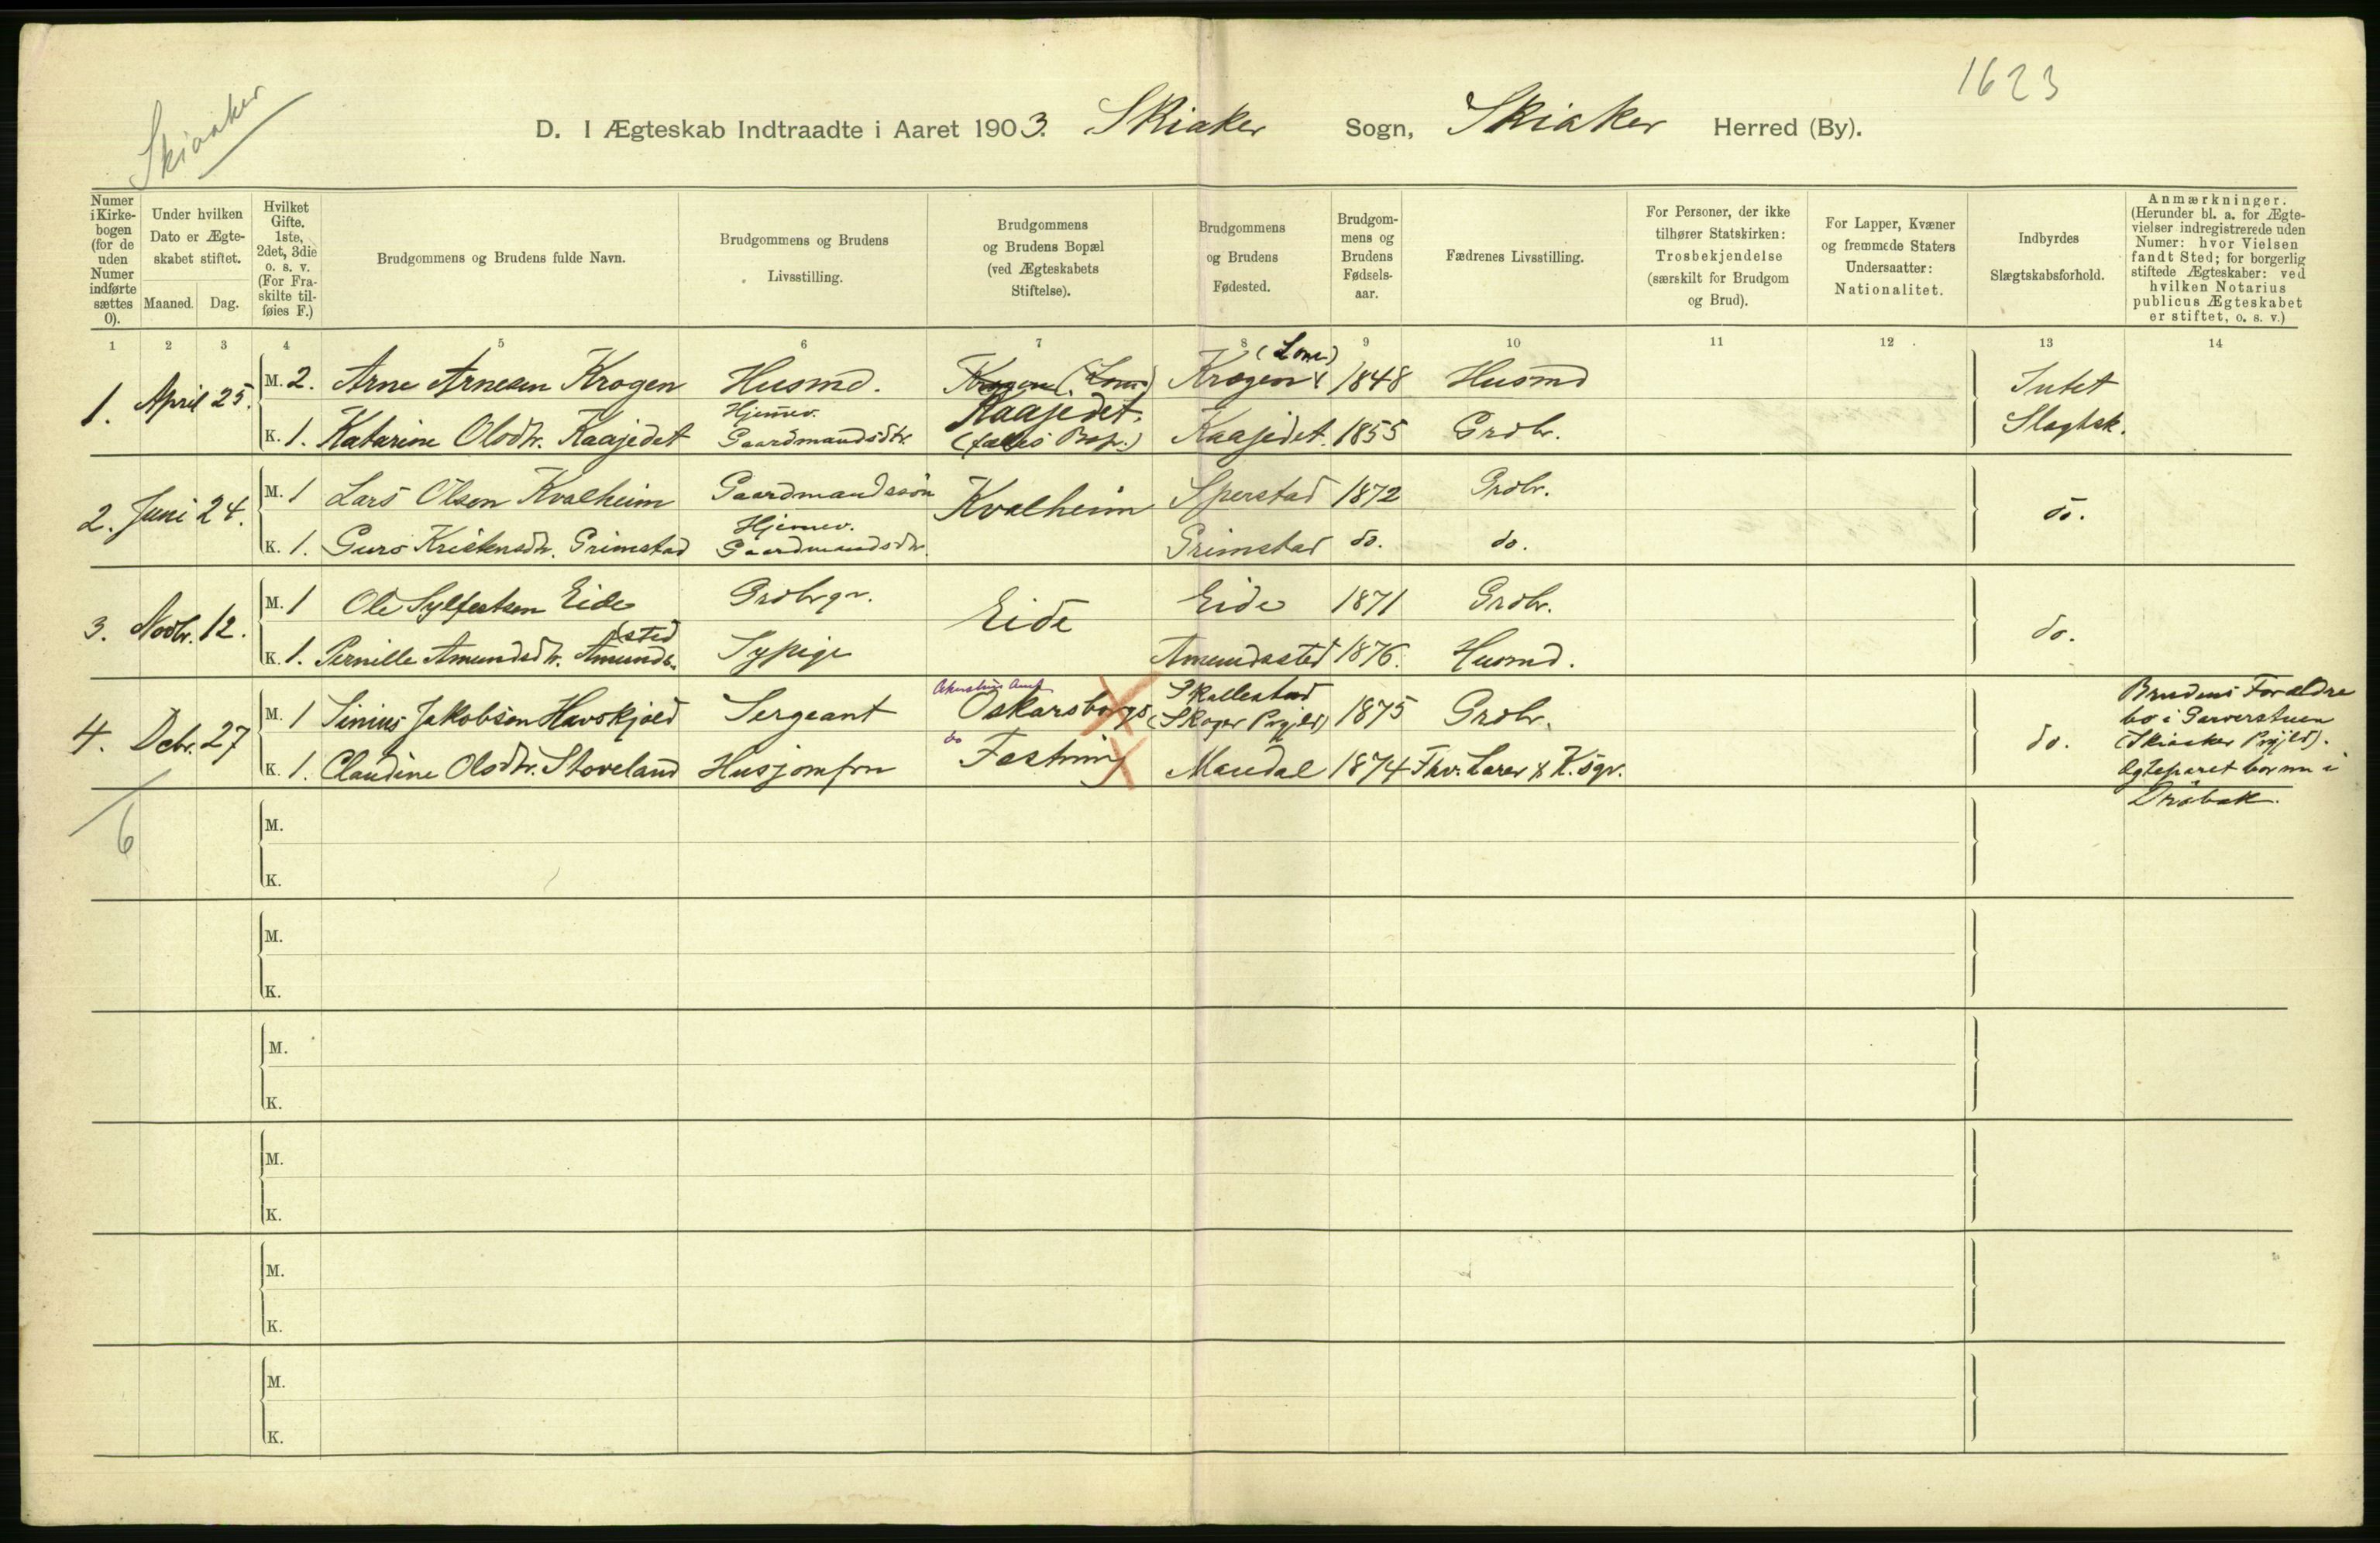 1623
Skiaaker
D. I Ægteskab Indtraadte i Aaret 1903. Skiaker Sogn, Skiaker Herred (By).
Numer i Kirke-bogen (for de uden Numer indførte sættes 0).
Under hvilken Dato er Ægte-skabet stiftet.
Maaned. Dag.
Hvilket Gifte. 1ste, 2det, 3die o. s. v. (For Fra-skilte til-føies F.)
Brudgommens og Brudens fulde Navn.
Brudgommens og Brudens Livsstilling.
Brudgommens og Brudens Bopæl (ved Ægteskabets Stiftelse).
Brudgommens og Brudens Fødested.
Brudgom-mens og Brudens Fødsels-aar.
Fædrenes Livsstilling.
For Personer, der ikke tilhører Statskirken: Trosbekjendelse (særskilt for Brudgom og Brud).
For Lapper, Kvæner og fremmede Staters Undersaatter: Nationalitet.
Indbyrdes Slægtskabsforhold.
Anmærkninger. (Herunder bl. a. for Ægte-vielser indregistrerede uden Numer: hvor Vielsen fandt Sted; for borgerlig stiftede Ægteskaber: ved hvilken Notarius publicus Ægteskabet er stiftet, o. s. v.)
1 2 3 4 5 6 7 8 9 10 11 12 13 14
1. April 25. M. 2. Arne Arnesen Krogen Husmd. Krogen (Lom) Krogen (Lom) 1848 Husmd Intet Slægtsk.
K. 1. Katarine Olsdtr. Kaajedet Hjemmev. Gaardmandsdtr. Kaajedet. (fælles Bop.) Kaajedet. 1855 Grdbr.
2. Juni 24. M. 1 Lars Olsen Kvalheim Gaardmandssøn Kvalheim Sperstad 1872 Grdbr. do.
K. 1. Guro Kristensdtr. Grimstad Hjemmev. Gaardmandsdtr. Grimstad do. do.
3. Novbr. 12. M. 1 Ole Sylfestsen Eide Grdbrgr. Eide Eide 1871 Grdbr. do.
K. 1. Pernille Amundsdtr. Amunds-(sted Sypige Amundssted 1876. Husmd.
4. Debr. 27 M. 1 Sinius Jakobsen Havskjold Sergeant Akershus Amt Oskarsborgs Skallestad (Skoger Prgjeld) 1875 Grdbr. do. Brudens Forældre
K. 1. Claudine Olsdtr. Stoveland Husjomfru do Festning Mandal 1874 Fhv. Lærer & K.sgr. bo i Garverstuen
(Skiaker Prgjeld).
Egteparet bor nu i
Drøbak.
6
M.
K.
M.
K.
M.
K.
M.
K.
M.
K.
M.
K.